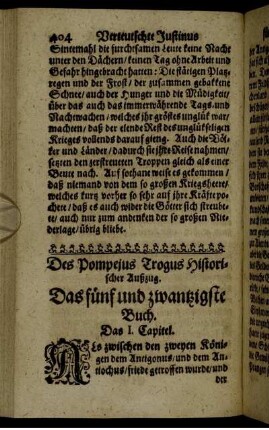 404 Verteutschte Justinus
Sintemahl die furchtsamen Leute keine Nacht
unter den Dächern/ keinen Tag ohne Arbeit und
Gefahr hingebracht hatten: Die stätigen Platz-
regen und der Frost/ der zusammen gebakkene
Schnee/ auch der Hunger und die Müdigkeit/
über das auch das immerwährende Tags- und
Nachtwachen/ welches ihr gröstes unglük war/
machten/ daß der elende Rest des unglükseligen
Krieges vollends darauf gieng. Auch die Völ-
ker und Länder/ dadurch sie ihre Reise nahmen/
setzten den zerstreueten Troppen gleich als einer
Beute nach. Auf sothane weise es gekommen/
daß niemand von dem so großen Kriegsheere/
welches kurz vorher so sehr auf ihre Kräfte po-
chete/ daß es auch wider die Götter sich streube-
te/ auch nur zum andenken der so großen Nie-
derlage/ übrig bliebe.
Des Pompejus Trogus Histori-
scher Außzug.
Das fünf und zwantzigste
Buch.
Das I. Capitel.
Als zwischen den zweyen Köni-
gen dem Antigonus/ und dem An-
tiochus/ friede getroffen wurde/ und
der